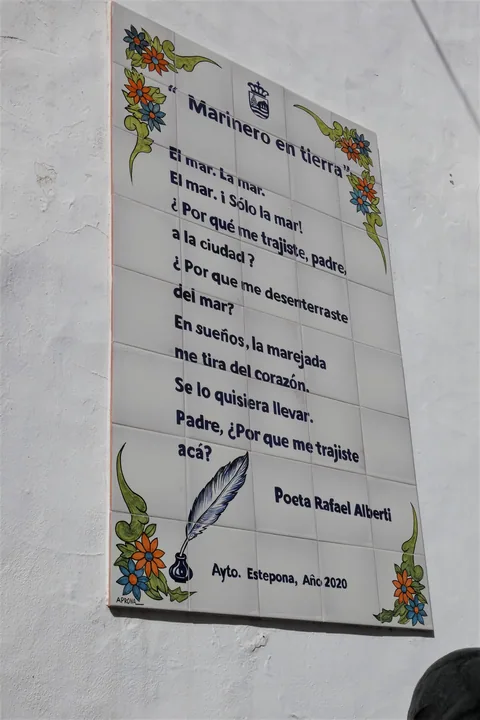 “ Marinero en tierra”
El mar. La mar.
El mar. ¡ Sólo la mar!
¿ Por qué me trajiste, padre,
a la ciudad ?
¿ Por que me desenterraste
del mar?
En sueños, la marejada
me tira del corazón.
Se lo quisiera llevar.
Padre, ¿Por que me trajiste
acá?
Poeta Rafael Alberti
Ayto. Estepona, Año 2020